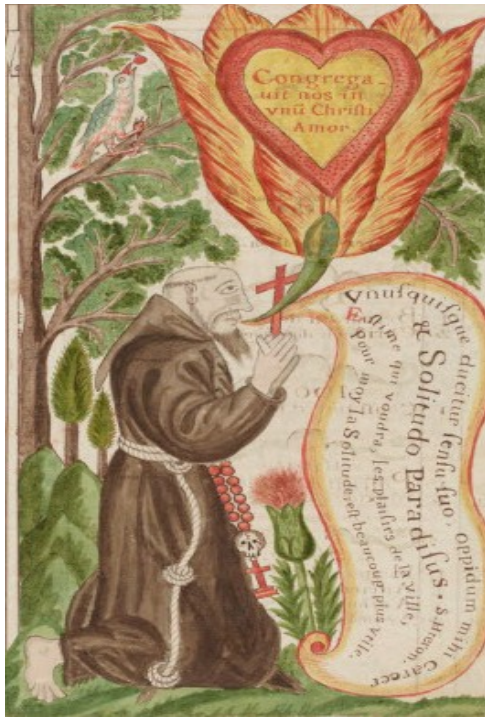 Congrega-
uit nos in
vnū Christi
Amor.
Vnuſquiſque ducitur ſenſu ſuo, oppidum mihi Carcer
& Solitudo Paradiſus. S. Hieron.
Eſtime qui voudra, les plaiſirs de la ville,
Pour moy la Solitude eſt beaucoup plus vtille.